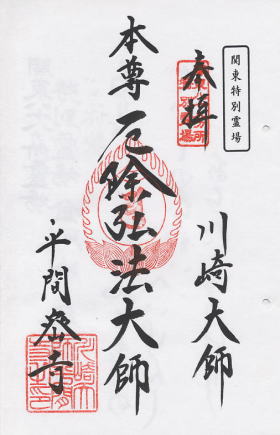 関東特別霊場
奉拝
川崎大師
本尊厄除弘法大師
平間寺